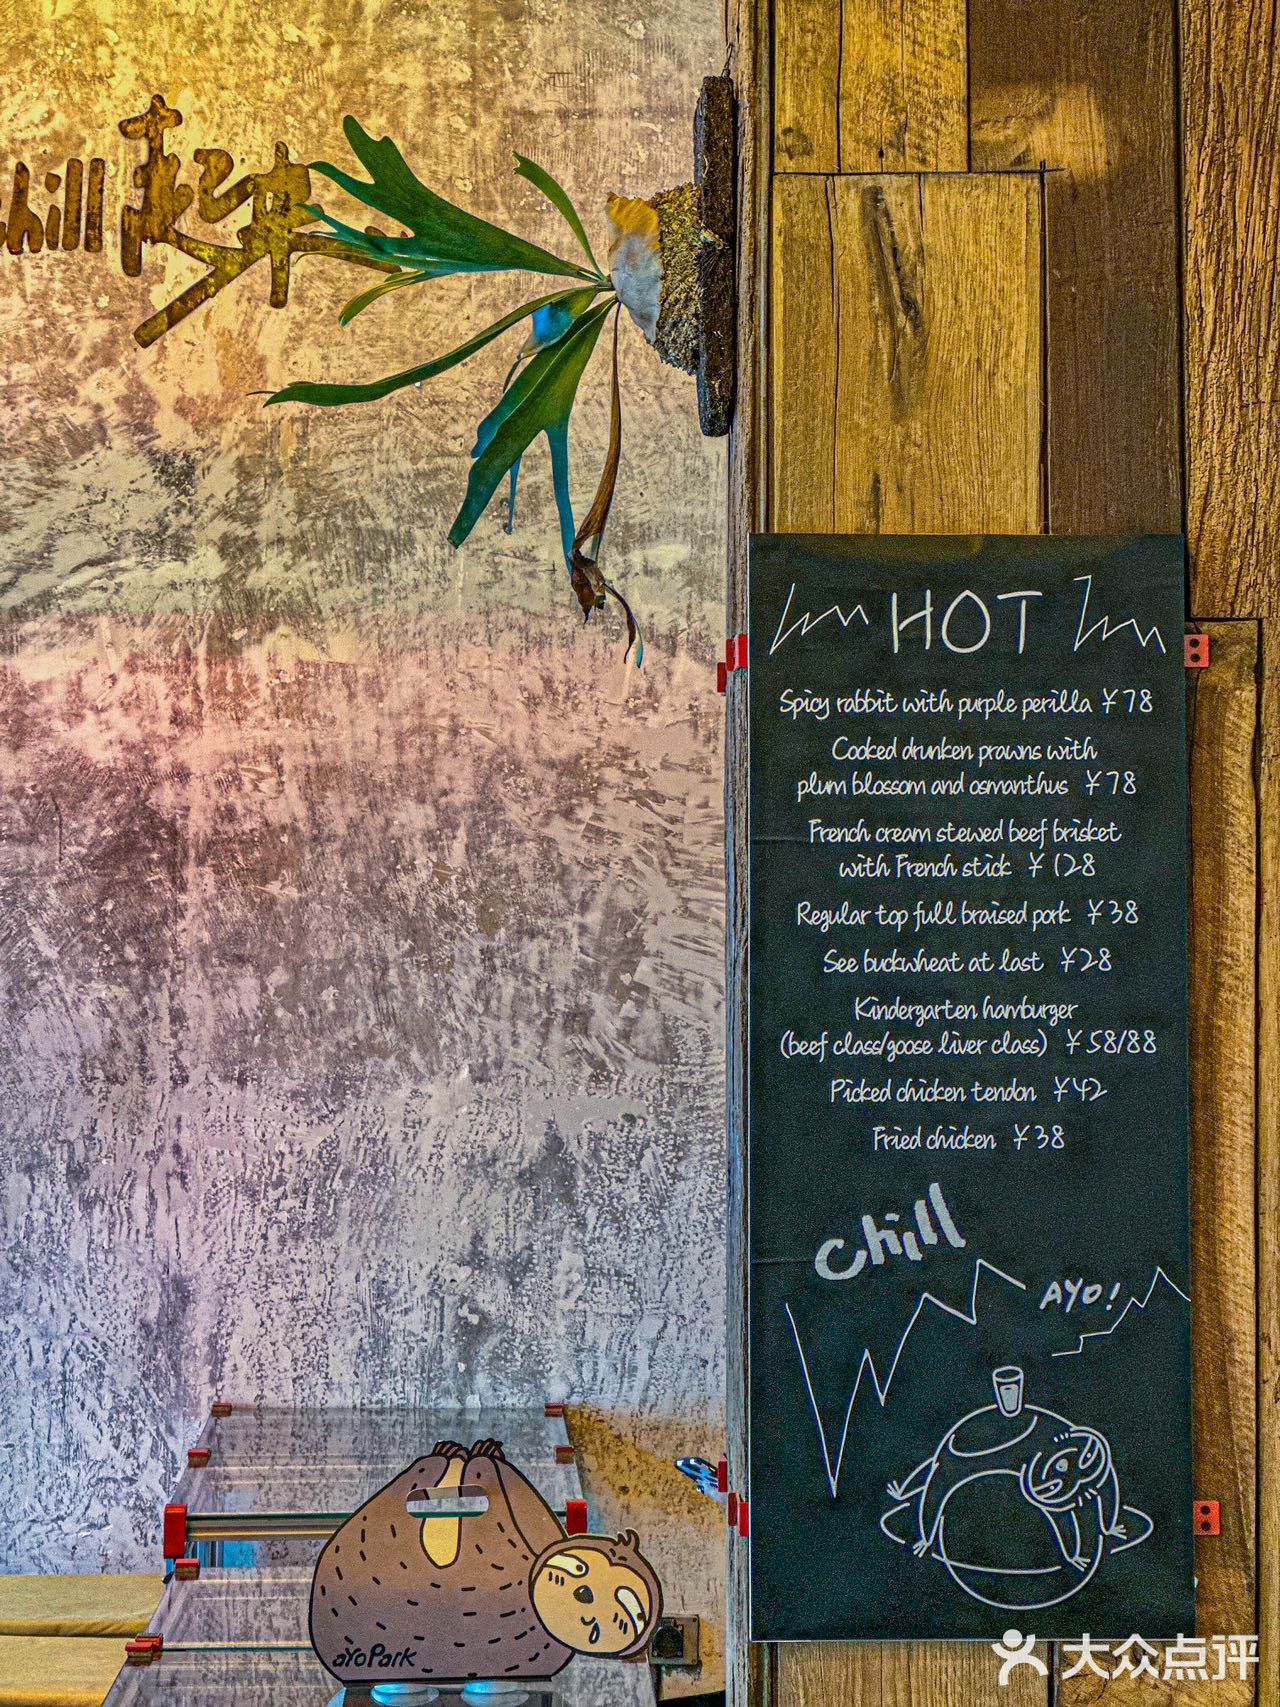 hill 起来
HOT
Spicy rabbit with purple perilla ¥78
Cooked drunken prawns with
plum blossom and osmanthus ¥78
French cream stewed beef brisket
with French stick ¥128
Regular top full braised pork ¥38
See buckwheat at last ¥28
Kindergarten hamburger
(beef class/goose liver class) ¥58/88
Picked chicken tendon ¥42
Fried chicken ¥38
Chill
AYO!
aYoPark
大众点评